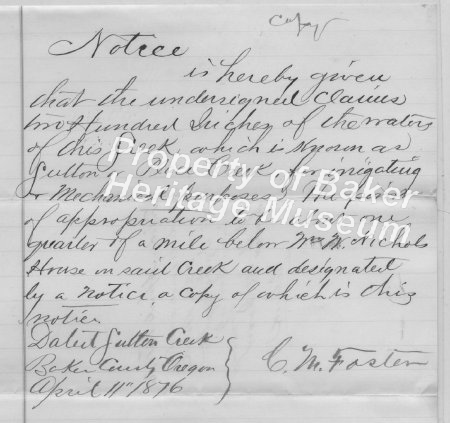 copy
Notice
is hereby given
that the undersigned Claims
two Hundred Inches of the waters
of this Creek, which is Known as
Sutton Creek, for irrigating
or Mechanical purposes
of appropriation is one
quarter of a mile below Wm Nichols
House on said Creek and designated
by a notice a copy of which is this
notice
Dated Sutton Creek
Baker County Oregon
April 11" 1876
C. M. Foster
Property of Baker
Heritage Museum